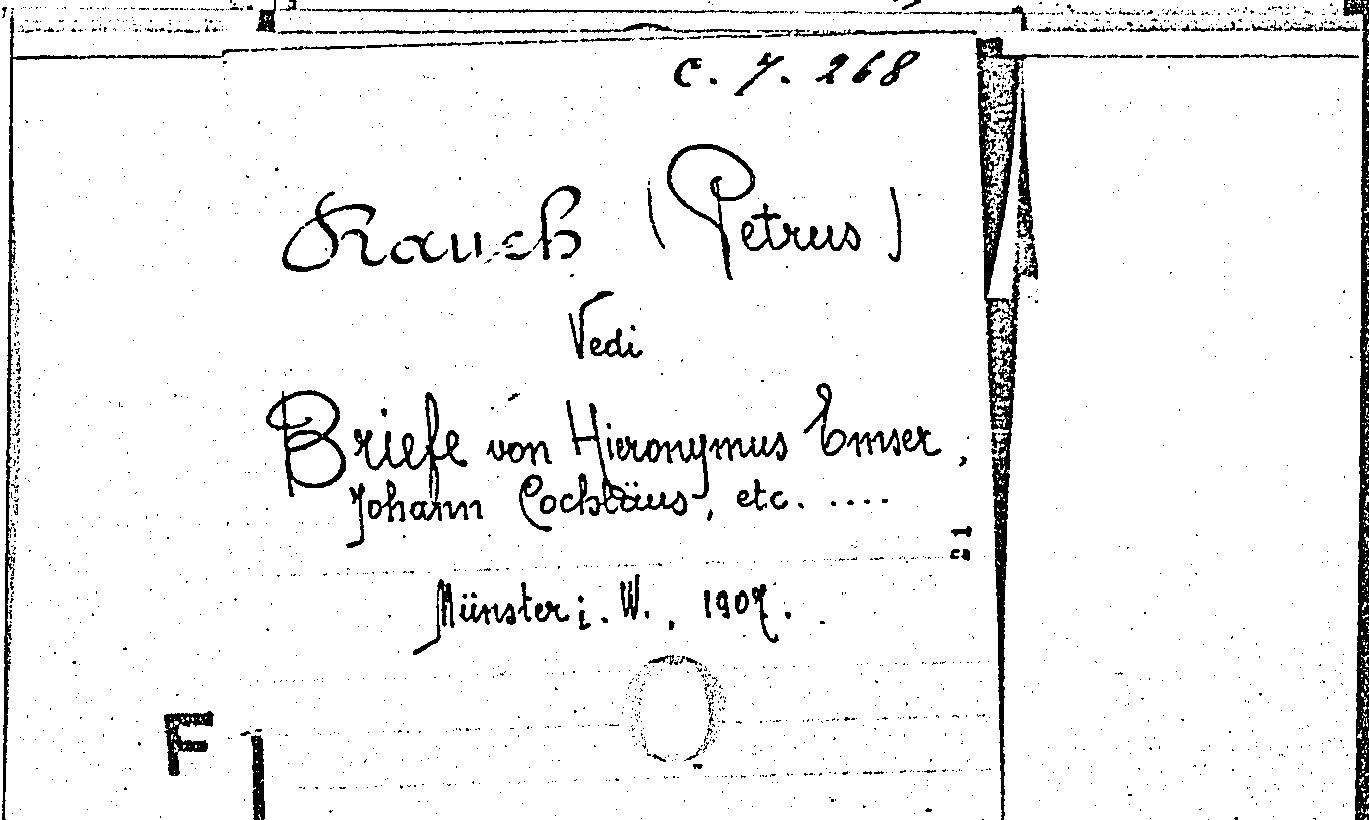 C. 7. 268
Rauch (Petrus)
Vedi
Briefe von Hieronymus Emser,
Johann Cochläus, etc. ....
Münster i. W., 1907.
F